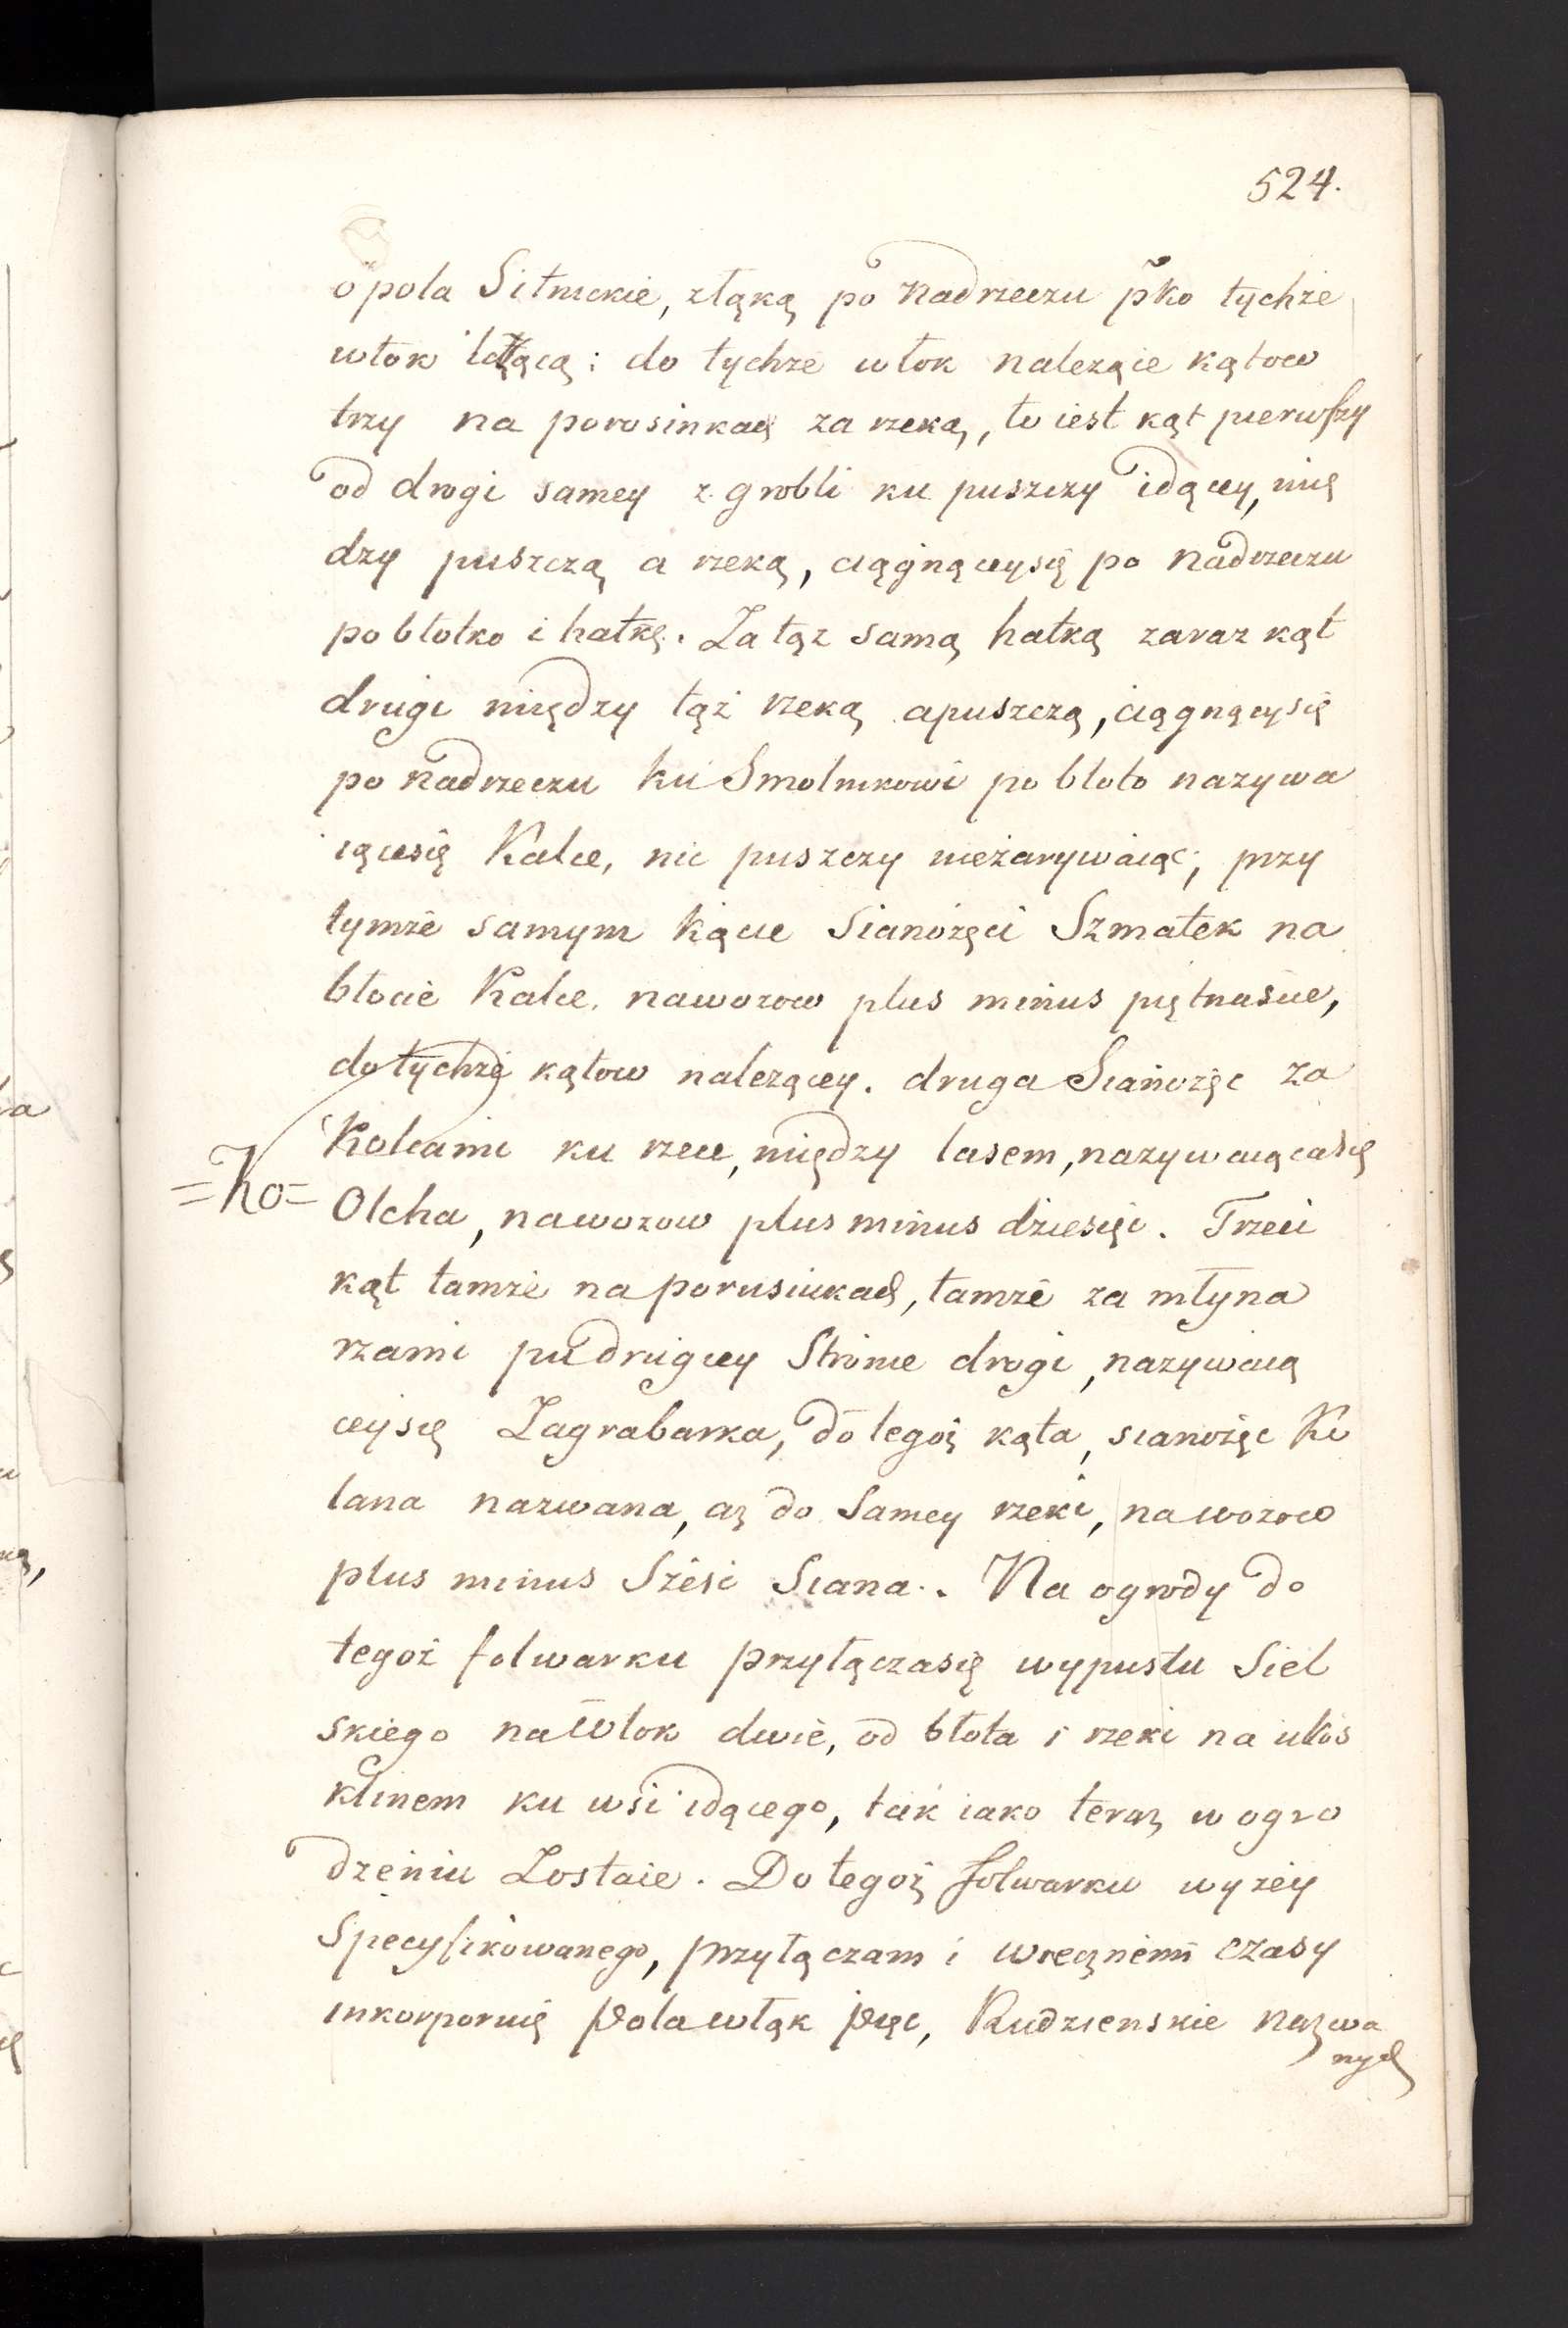 524.
o pola Sitnickie, złąką po nadrzeczu pko tychże
włok leżącą: do tychże włok nalezące kątow
trzy na porosinkach za rzeką, to iest kąt pierwszy
od drogi samey z grobli ku puszczy idącey, mię
dzy puszczą a rzeką, ciągnącysię po nadrzeczu
po błotko i hatkę. Za tąż samą hatką zaraz kąt
drugi między tąż rzeką apuszczą, ciągnącysię
po nadrzeczu ku Smolnikowi po błoto nazywa
iącesię Kalce, nic puszczy niezarywaiąc; przy
tymże samym kącie Sianożęci Szmatek na
błocie Kalce. nawozow plus minus piętnaście,
do tychże kątow nalezącey. druga Sianożęc za
Kolcami ku rzece, między lasem, nazywaiącasię
=Ko=
Olcha, nawozow plus minus dziesięc. Trzeci
kąt tamże na porusiukach, tamże za młyna
rzami pu drugiey Stronie drogi, nazywaią
cysię Zagrabarka, do tegoż kąta, sianożęc Ko
lana nazwana, aż do Samey rzeki, na wozow
plus minus Sześc Siana. Na ogrody do
tegoż folwarku przyłączasię wypustu Siel
skiego na Włok dwie, od błota i rzeki na ukos
klinem ku wsi idącego, tak iako teraz w ogro
dzeniu Zostaie. Do tegoż folwarku wyżey
Specyfikowanego, przyłączam i wiecznemi czasy
inkorporuię Pola włąk pięc, Rudzienskie nazwa
nych